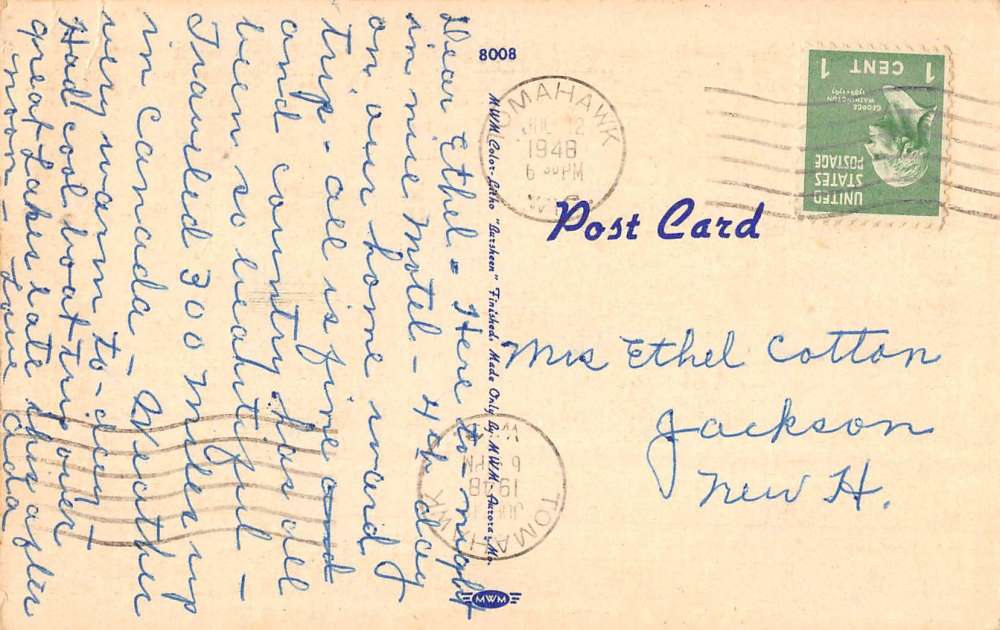 Dear Ethel - Here to-night
in nice Motel - 4th day
on our home ward
trip - all is fine and
and country has all
been so beautiful -
Traveled 300 Miles up
in Canada - Weather
very warm to-day
Had cool boat trip over
great Lakes late this after
noon - Love Ada
8008
MWM Color-Litho "Darsheen" Finished: Made Only By MWM - Aurora, Mo.
MWM
TOMAHAWK
JUL 12
1948
6 30 PM
WIS.
UNITED
STATES
POSTAGE
GEORGE
WASHINGTON
1789-1797
1 CENT 1
Post Card
Mrs Ethel Cotton
Jackson
New H.
TOMAHAWK
1948
6 PM